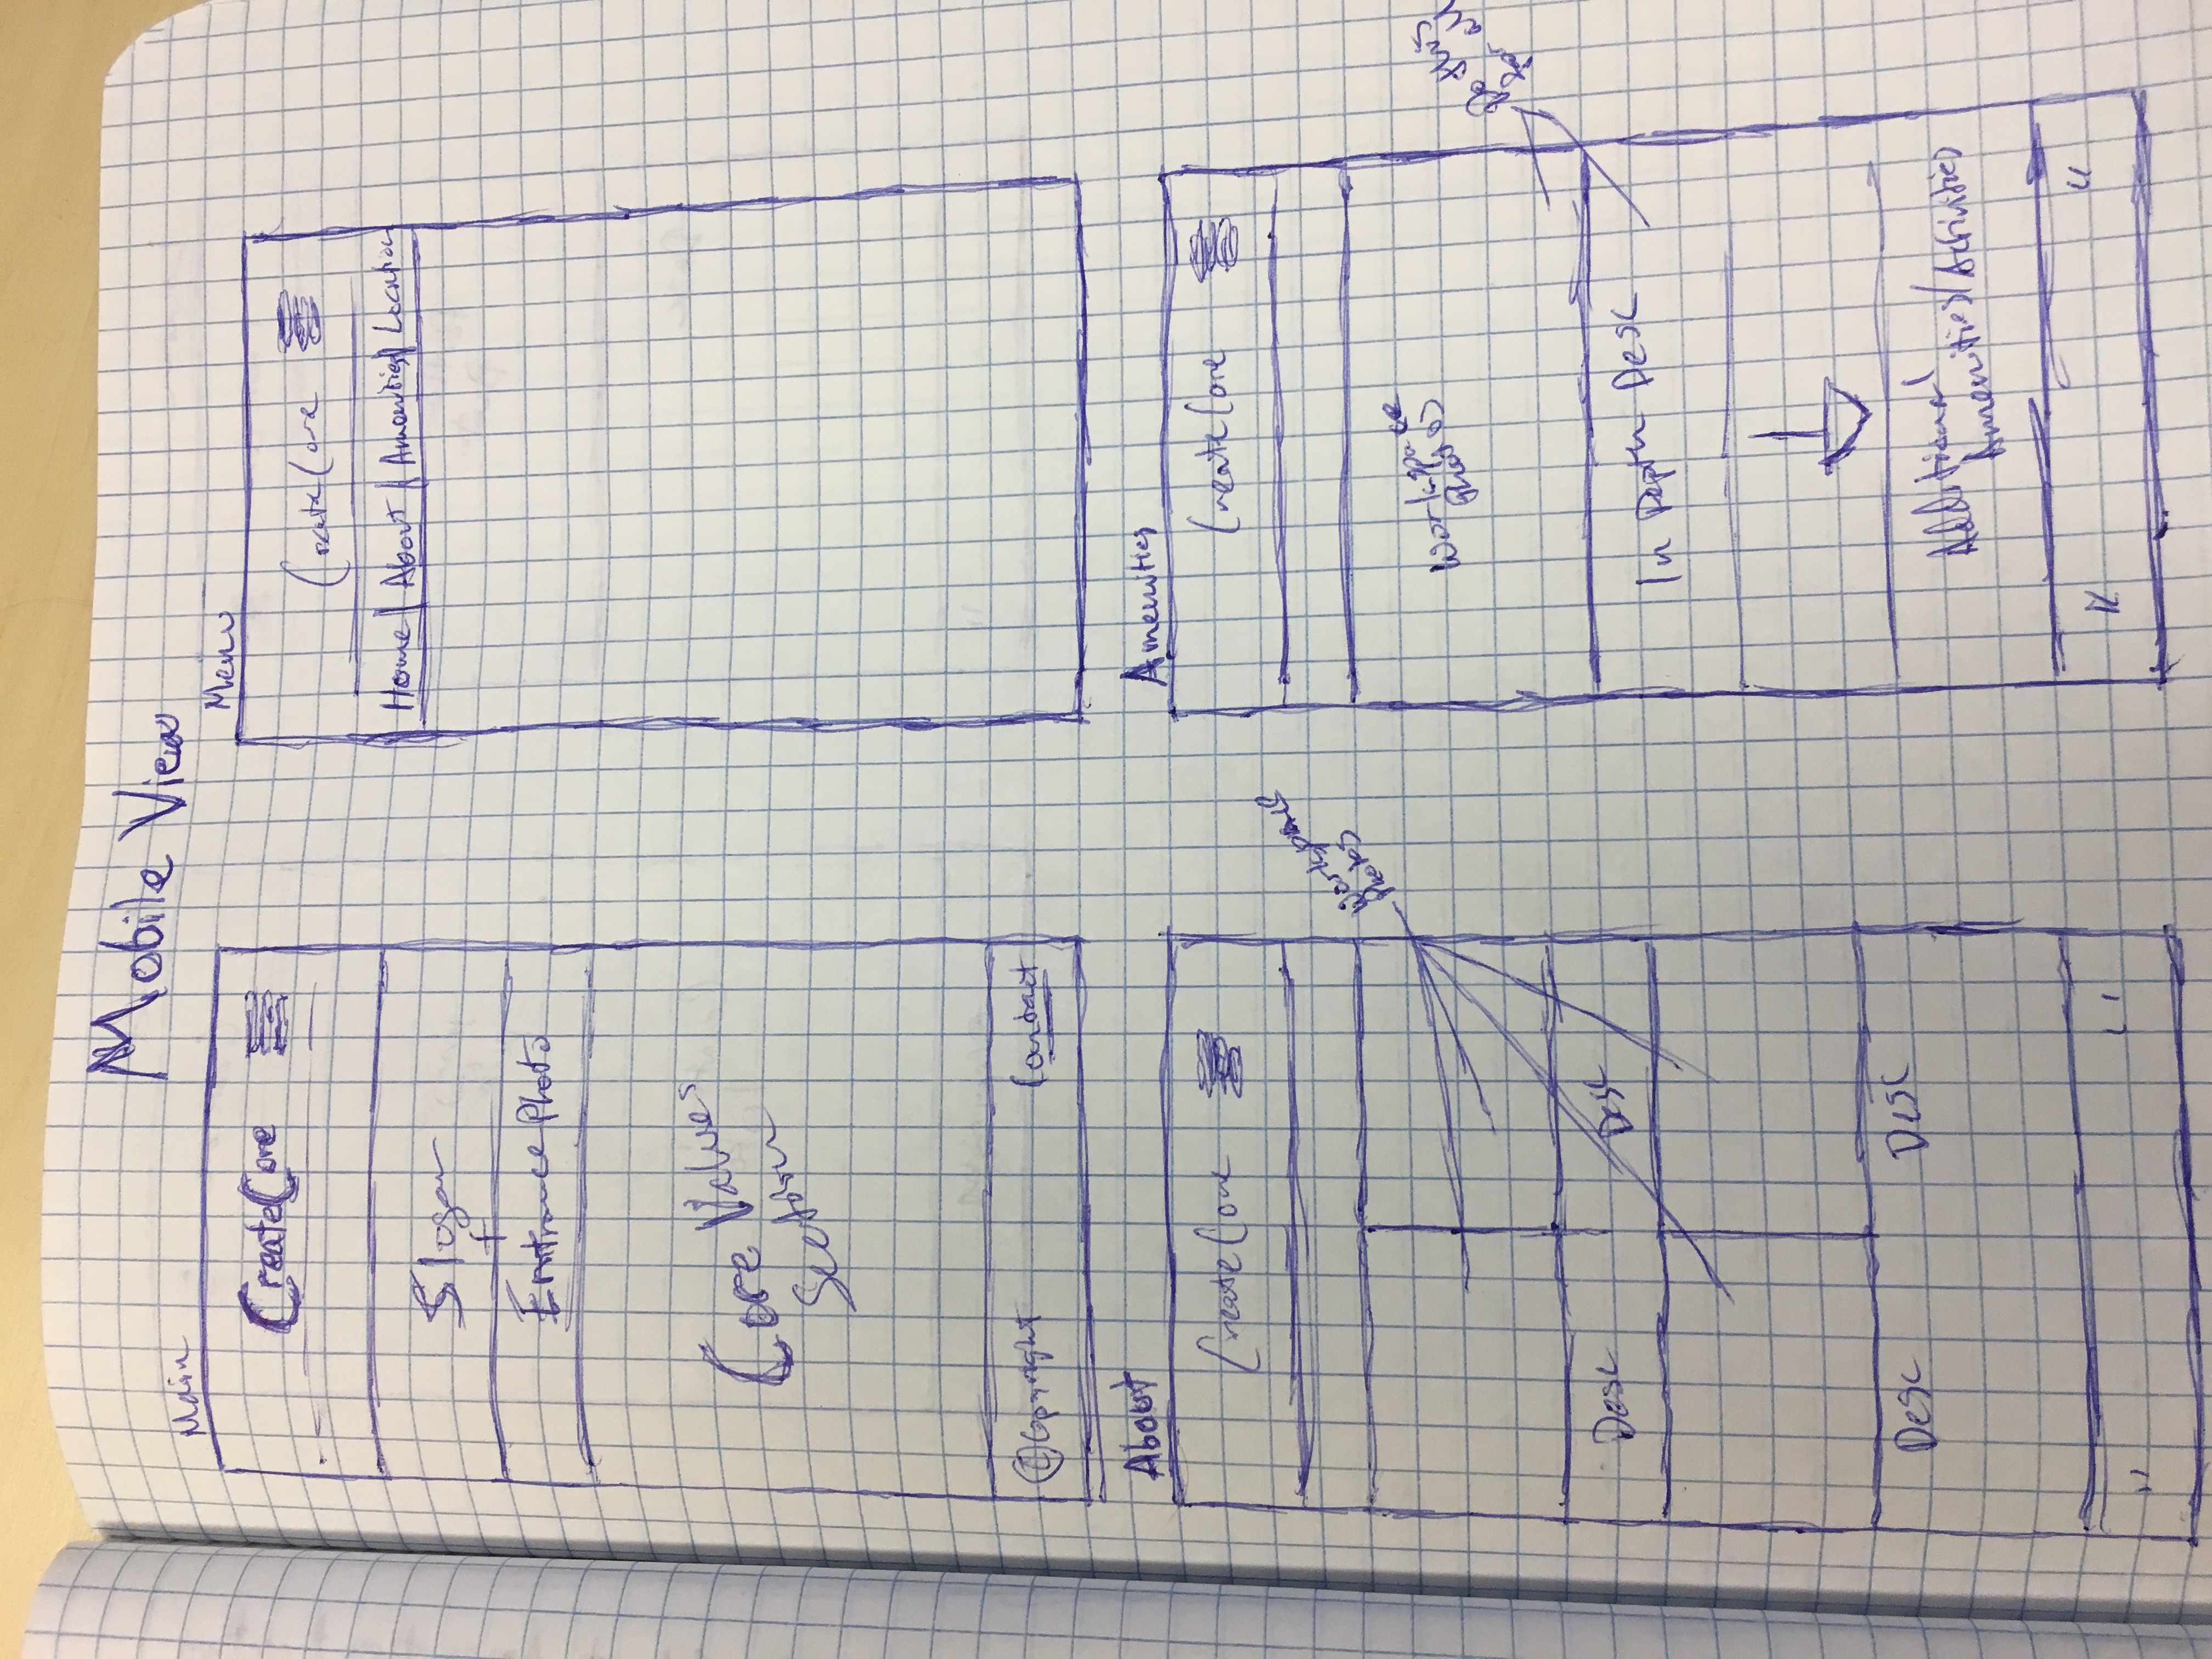 Mobile View
Main
CreateCore
Slogan
+
Entrance Photo
Core Values
Section
© Copyright
Contact
Menu
CreateCore
Home | About | Amenities | Location
About
CreateCore
Workspace
Photos
Desc
Desc
Desc
Desc
"
"
Amenities
CreateCore
Workspace
Photos
Do this
for all
In Depth Desc
Additional
Amenities/Activities
"
"